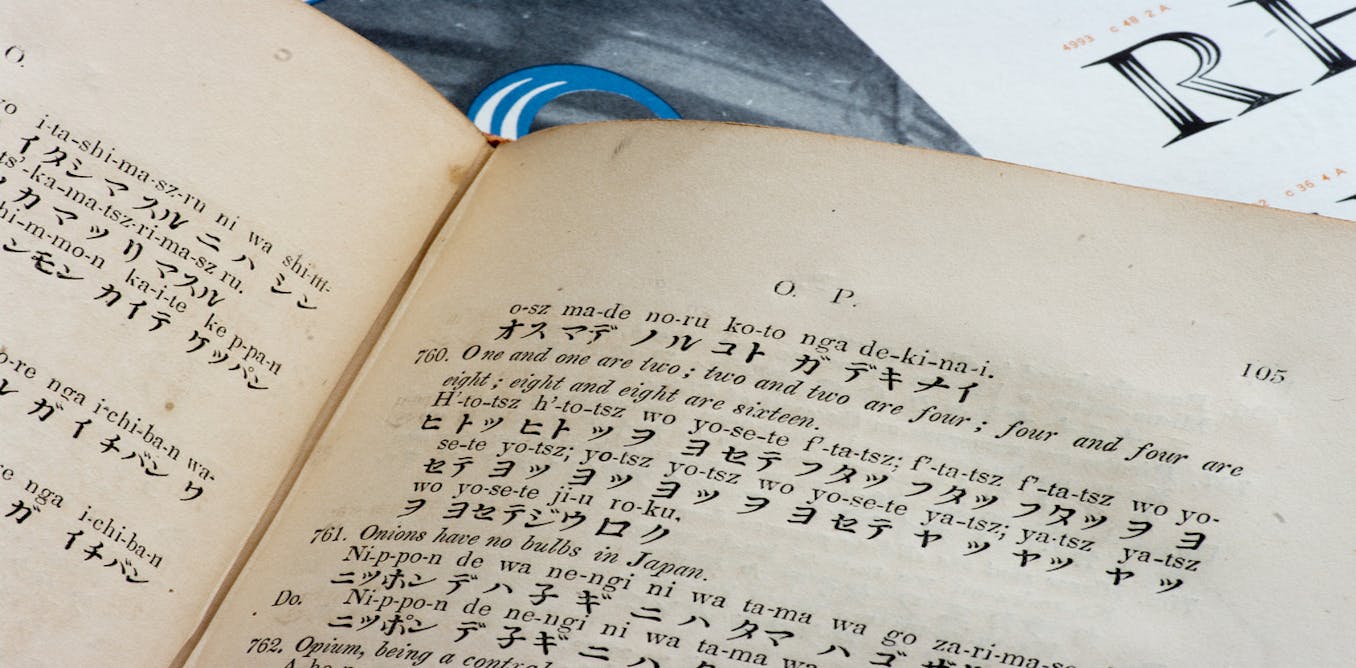 O.
i-ta-shi-ma-sz-ru ni wa shi-m-
イタシマスルニハ シン
ts'-ka-ma-tsz-ri-ma-sz ru.
カマツリマスル
hi-m-mo-n ka-i-te ke p-pa-n
ンモン カイテ ケッパン
o-re nga i-chi-ba-n wa-
ル ガ イチバン ワ
re nga i-chi-ba-n
ガ イチバン
O. P.
105
o-sz ma-de no-ru ko-to nga de-ki-na-i.
オス マデ ノル コト ガ デキナイ
760. One and one are two; two and two are four; four and four are
eight; eight and eight are sixteen.
H'-to-tsz h'-to-tsz wo yo-se-te f'-ta-tsz; f'-ta-tsz f'-ta-tsz wo yo-
ヒトツ ヒトツ ヲ ヨセテ フタツ フタツ フタツ ヲ ヨ
se-te yo-tsz; yo-tsz yo-tsz wo yo-se-te ya-tsz; ya-tsz ya-tsz
セテ ヨツ ヨツ ヨツ ヲ ヨセテ ヤツ ヤツ ヤツ
wo yo-se-te ji-u ro-ku.
ヲ ヨセテジウロク
761. Onions have no bulbs in Japan.
Ni-p-po-n de wa ne-ngi ni wa ta-ma wa go za-ri-ma-se
ニツポン デハ 子ギ ニハ タマ ハ ゴ
Do. Ni-p-po-n de ne-ngi ni wa ta-ma wa
ニツポン デ 子ギ ニ ハ
762. Opium, being a
4993 c 48 2 A
R
c 36 4 A